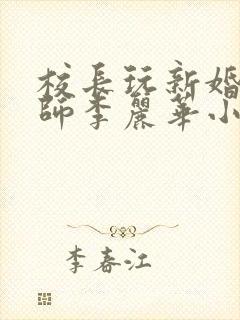 校長玩新婚
師李麗華小
李春江